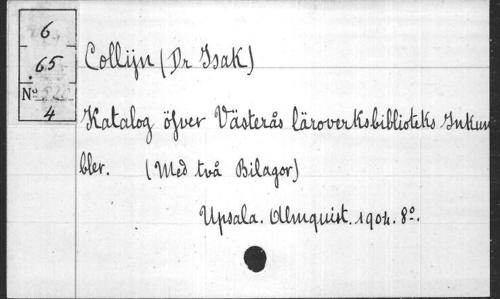 6
65
Nº
4
Collijn (Dr Isak)
Katalog öfver Västerås läroverksbiblioteks Inkun
bler. (Med två Bilagor)
Upsala. Almquist. 1904. 8º.